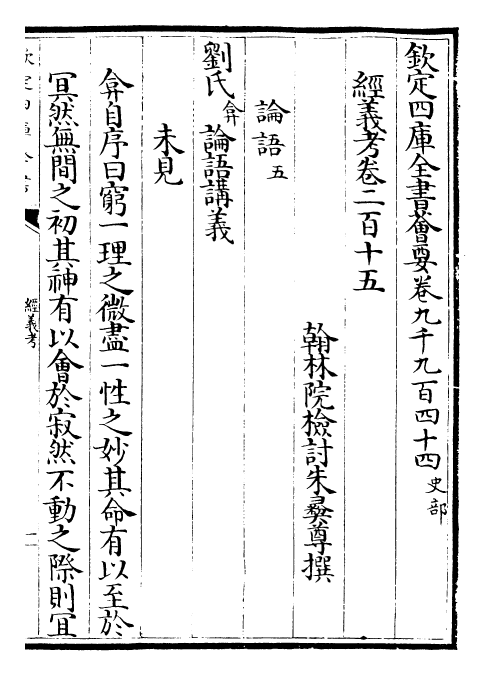 欽定四庫全書薈要卷九千九百四十四 史部
經義考卷二百十五
翰林院檢討朱彝尊撰
論語 五
劉氏 弇 論語講義
未見
弇自序曰窮一理之微盡一性之妙其命有以至於
冥然無間之初其神有以會於寂然不動之際則冝
經義考